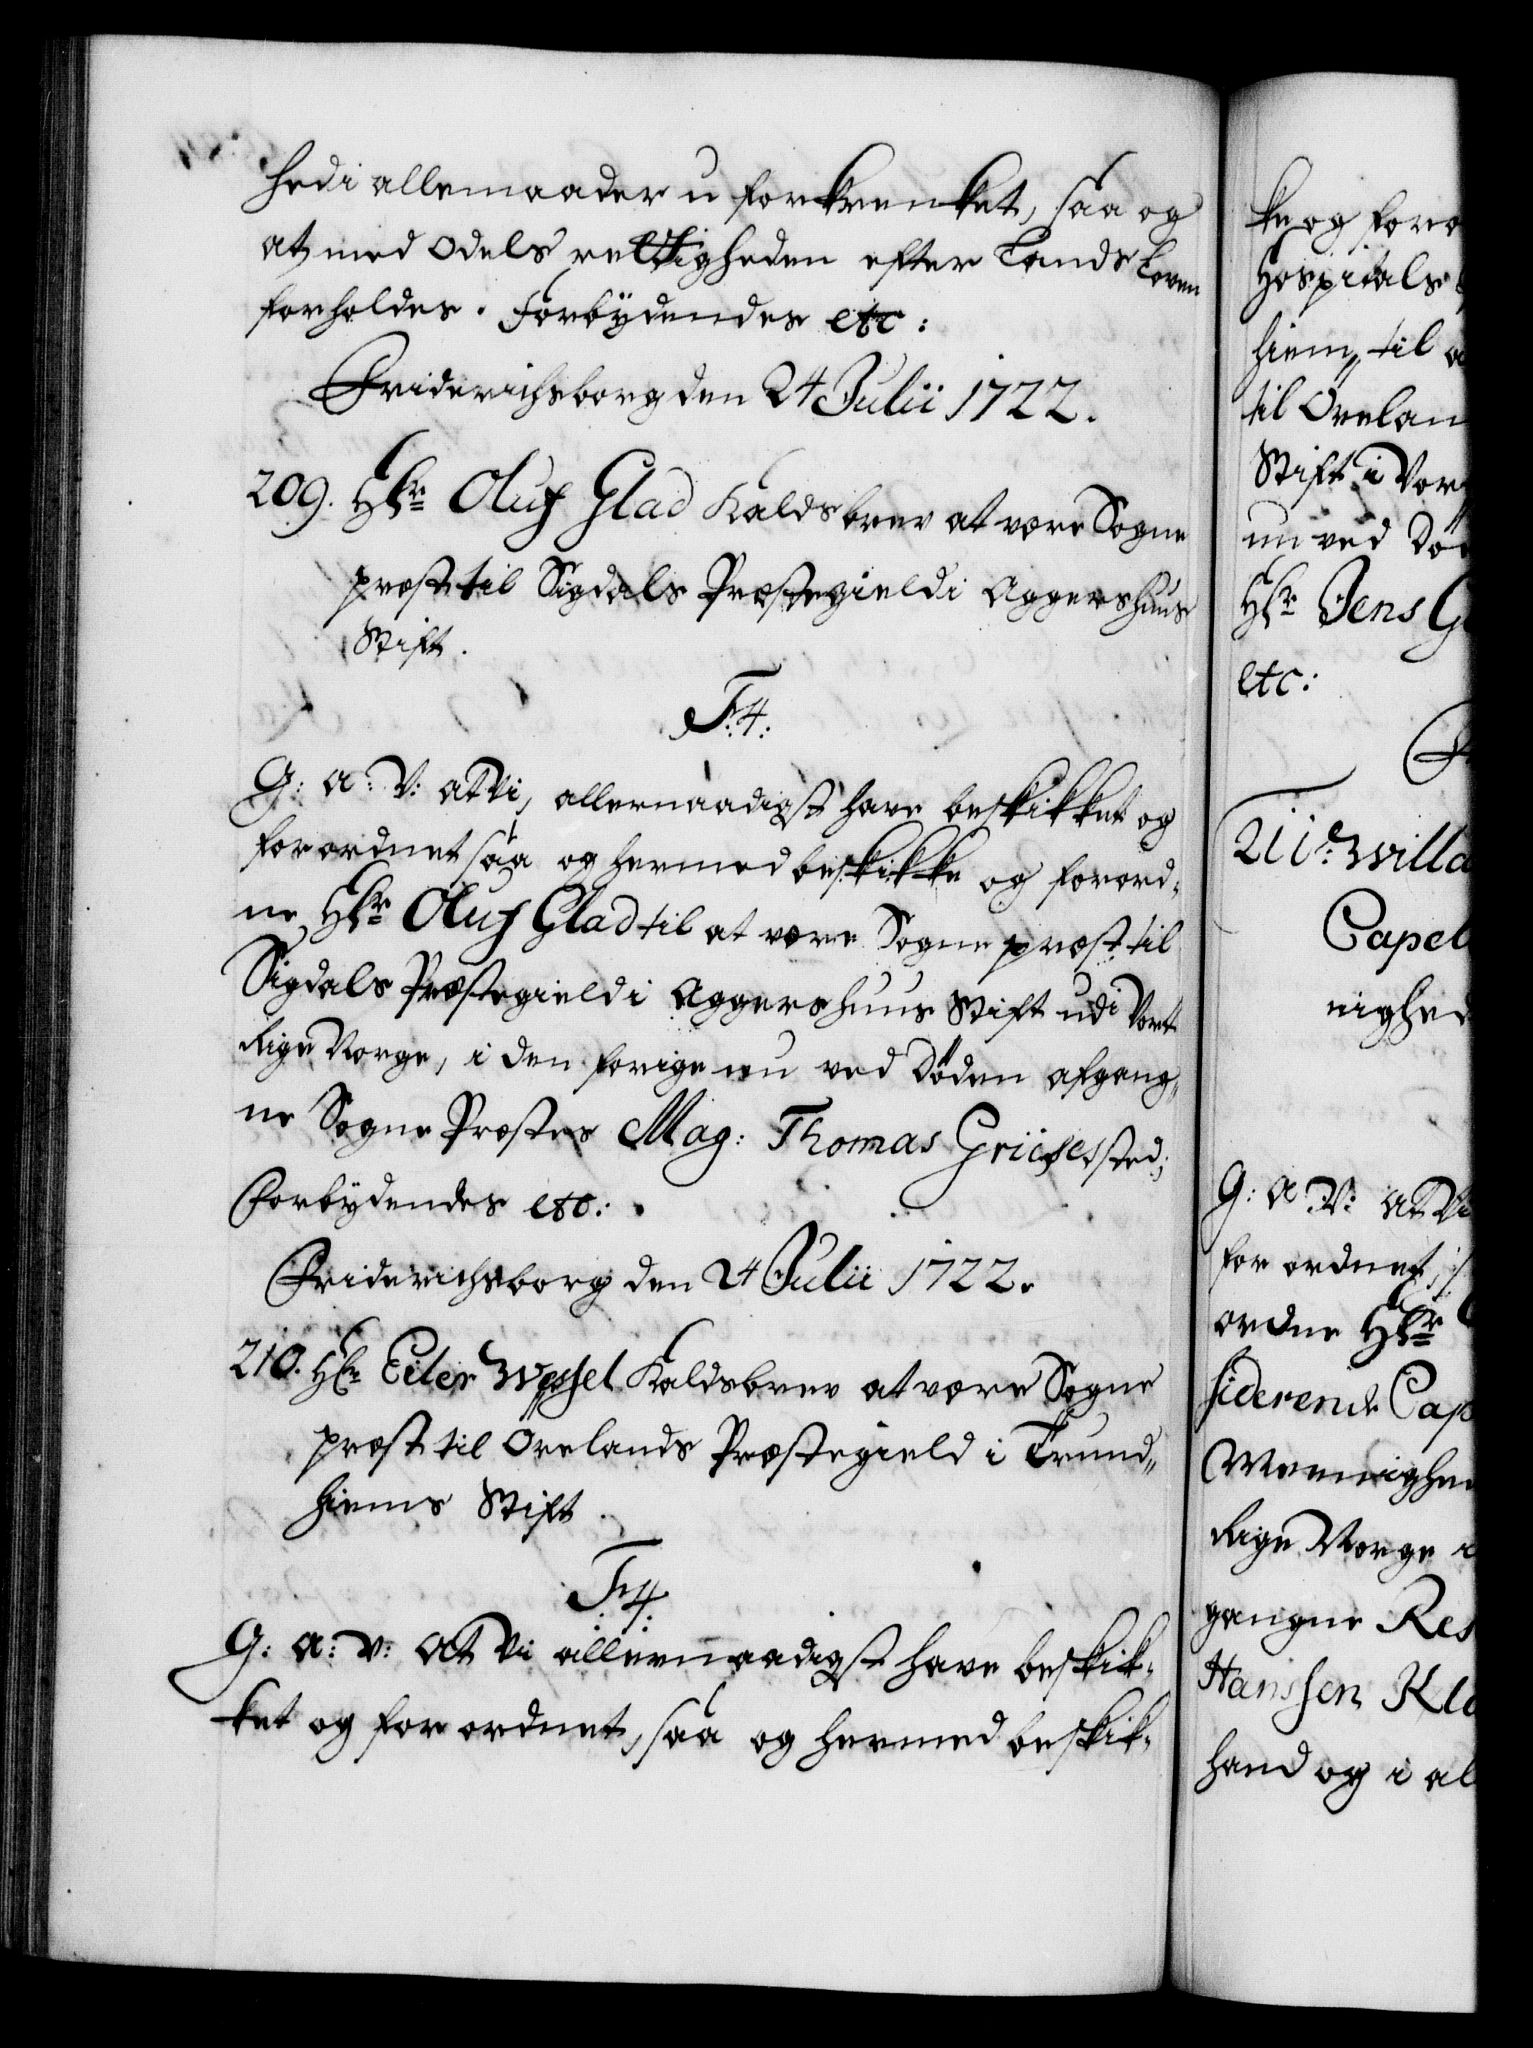 hed i allemaader u forkrenket, saa og
at med Odels rettigheden efter Lands Loven
forholdes. Forbydendes etc:
Friderichsborg den 24 Julii 1722.
209. Hr Oluf Glad Kaldsbrev at være Sogne
præst til Sigdals Præstegield i Aggershuus
Stift.
F:4:
G: A: V: at Vi, allernaadigst have beskikket og
forordnet saa og hermed beskikke og forord-
ne, Hr Oluf Glad til at være Sogne præst til
Sigdals Præstegield i Aggershuus Stift udi Vort
Rige Norge, i den forige nu ved Døden afgang-
ne Sogne Præstes Mag: Thomas Griises sted;
Forbydendes etc:
Friderichsborg den 24 Julii 1722.
210. Hr Eiler Wessel Kaldsbrev at være Sogne
præst til Ørelands Præstegield i Trund-
hiems Stift.
F:4:
G: A: V: At Vi allernaadigst have beskik-
ket og forordnet, saa og hermed beskik-
ke og foro
Hospitals
hiem, til a
til Ørelan
Stift i Vor
nu ved Dø
Hr Jens G
etc:
F
211. Willa
Capel
nighed
G: A: V: At Vi
for ordnet, s
ordne Hr
siderende Cap
Meenighe
Rige Norge i
gangne Res
Hanssen Kl
hand og i al